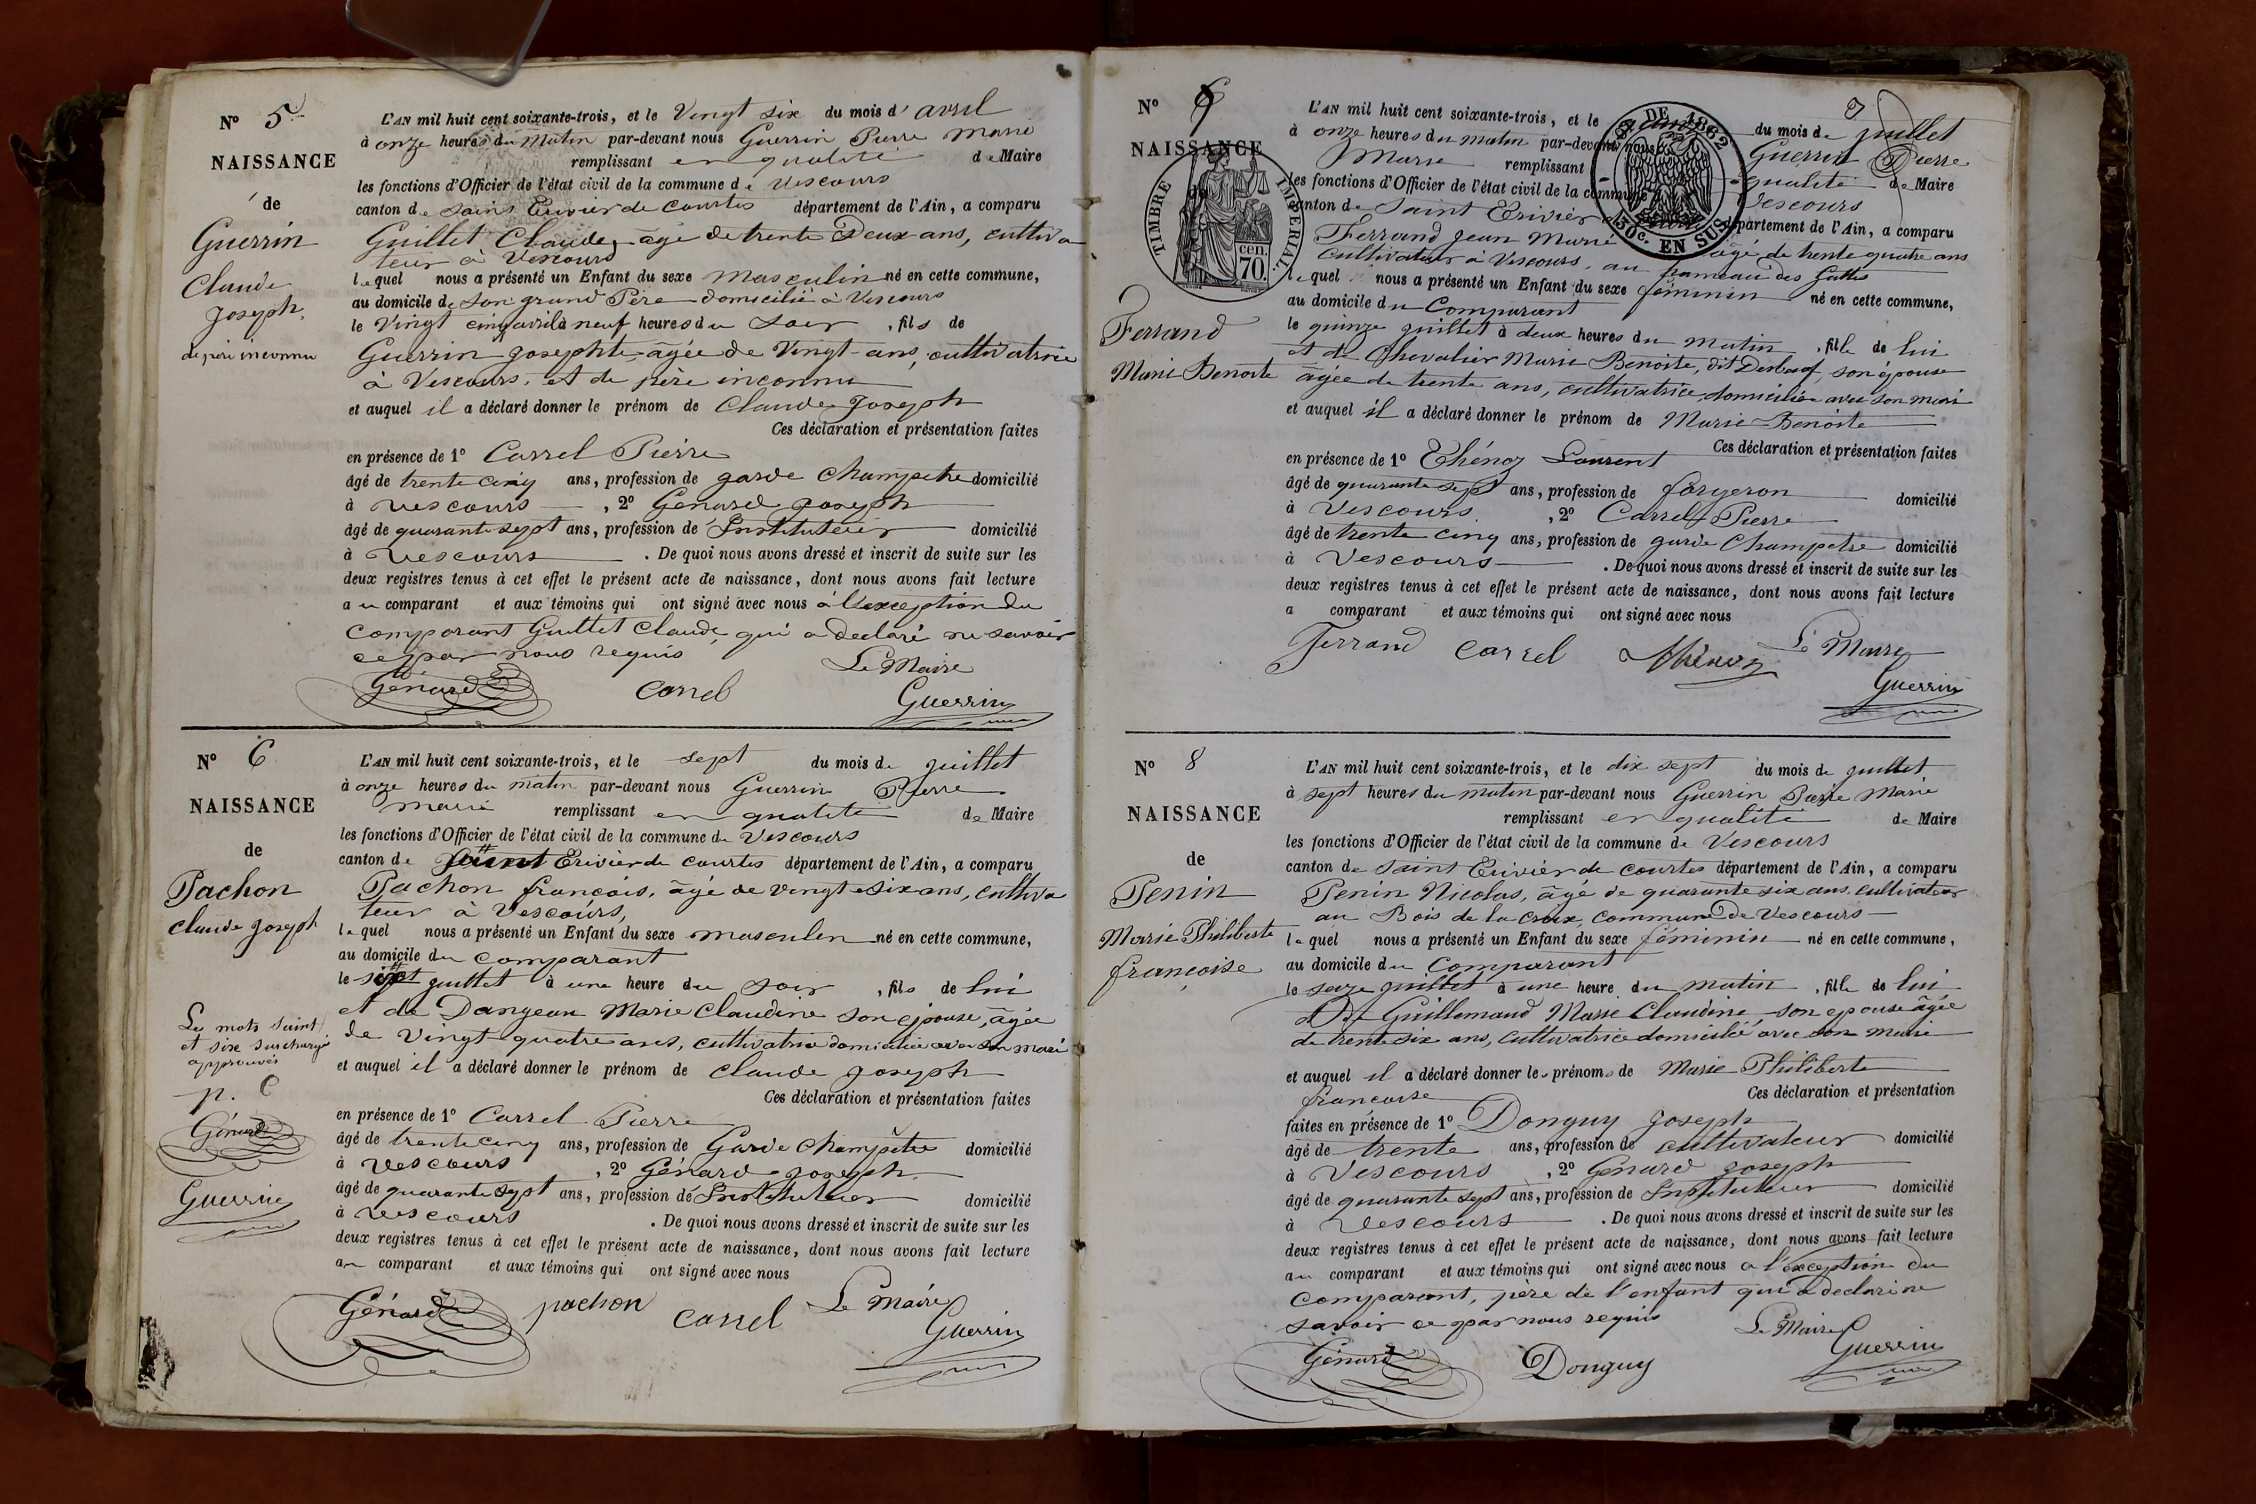 N° 5
NAISSANCE
de
Guerrin
Claude
Joseph
de père inconnu
L'AN mil huit cent soixante-trois, et le Vingt six du mois d'avril
à onze heures du Matin par-devant nous Guerrin Pierre Marie
remplissant en qualité de Maire
les fonctions d'Officier de l'état civil de la commune de Vescours
canton de Saint Trivier de Courtes département de l'Ain, a comparu
Guillet Claude, âgé de trente Deux ans, cultiva
teur à Vescours
lequel nous a présenté un Enfant du sexe Masculin né en cette commune,
au domicile de son grand Père domicilié à Vescours
le Vingt cinq avril à neuf heures du Soir, fils de
Guerrin Josephte âgée de Vingt ans, cultivatrice
à Vescours, et de père inconnu
et auquel il a déclaré donner le prénom de Claude Joseph
Ces déclaration et présentation faites
en présence de 1° Carrel Pierre
âgé de trente cinq ans, profession de garde Champetre domicilié
à Vescours, 2° Génard Joseph
âgé de quarante sept ans, profession de Instituteur domicilié
à Vescours. De quoi nous avons dressé et inscrit de suite sur les
deux registres tenus à cet effet le présent acte de naissance, dont nous avons fait lecture
au comparant et aux témoins qui ont signé avec nous à l'exception du
comparant Guillet Claude, qui a declaré ne savoir
ce par nous requis
Le Maire
Génard Carrel Guerrin
N° 6
NAISSANCE
de
Pachon
Claude Joseph
Les mots Saint
et six surchargés
approuvés
p. C
Génard
Guerrin
L'AN mil huit cent soixante-trois, et le sept du mois de juillet
à onze heures du matin par-devant nous Guerrin Pierre
Marie remplissant en qualité de Maire
les fonctions d'Officier de l'état civil de la commune de Vescours
canton de Saint Trivier de Courtes département de l'Ain, a comparu
Pachon françois, âgé de vingt six ans, cultiva
teur à Vescours,
lequel nous a présenté un Enfant du sexe masculin né en cette commune,
au domicile du comparant
le six juillet à une heure du Soir, fils de lui
et de Dangeau Marie Claudine son épouse, âgée
de Vingt quatre ans, cultivatrice domiciliée avec son mari
et auquel il a déclaré donner le prénom de Claude Joseph
Ces déclaration et présentation faites
en présence de 1° Carrel Pierre
âgé de trente cinq ans, profession de Garde Champêtre domicilié
à Vescours, 2° Génard Joseph
âgé de quarante sept ans, profession de Instituteur domicilié
à Vescours. De quoi nous avons dressé et inscrit de suite sur les
deux registres tenus à cet effet le présent acte de naissance, dont nous avons fait lecture
au comparant et aux témoins qui ont signé avec nous
Génard pachon Carrel Le Maire
Guerrin
N° 7
NAISSANCE
TIMBRE IMPERIAL
70. cen.
Ferrand
Marie Benoite
2D DE 1862
50c. EN SUS
L'AN mil huit cent soixante-trois, et le du mois de juillet
à onze heures du matin par-devant nous Guerrin Pierre
Marie remplissant qualité de Maire
les fonctions d'Officier de l'état civil de la commune Vescours
canton de Saint Trivier département de l'Ain, a comparu
Ferrand Jean Marie âgé de trente quatre ans
cultivateur à Vescours, au hameau des Guttes
lequel nous a présenté un Enfant du sexe féminin né en cette commune,
au domicile du Comparant
le quinze juillet à deux heures du matin, fille de lui
et de Chevalier Marie Benoite, dit Desbœuf, son épouse
âgée de trente ans, cultivatrice, domiciliée avec son mari
et auquel il a déclaré donner le prénom de Marie Benoite
Ces déclaration et présentation faites
en présence de 1° Thénoz Laurent
âgé de quarante sept ans, profession de forgeron domicilié
à Vescours, 2° Carrel Pierre
âgé de trente cinq ans, profession de garde Champetre domicilié
à Vescours. De quoi nous avons dressé et inscrit de suite sur les
deux registres tenus à cet effet le présent acte de naissance, dont nous avons fait lecture
a comparant et aux témoins qui ont signé avec nous
Ferrand Carrel Thénoz Le Maire
Guerrin
N° 8
NAISSANCE
de
Penin
Marie Philiberte
françoise
L'AN mil huit cent soixante-trois, et le dix sept du mois de juillet
à sept heures du matin par-devant nous Guerrin Pierre Marie
remplissant en qualité de Maire
les fonctions d'Officier de l'état civil de la commune de Vescours
canton de Saint Trivier de Courtes département de l'Ain, a comparu
Penin Nicolas, âgé de quarante six ans, cultivateur
au Bois de la Croix, commune de Vescours
lequel nous a présenté un Enfant du sexe féminin né en cette commune,
au domicile du Comparant
le seize juillet à une heure du matin, fille de lui
et de Guillemaud Marie Claudine son épouse âgée
de trente six ans, cultivatrice domicilié avec son marie
et auquel il a déclaré donner les prénoms de Marie Philiberte
françoise Ces déclaration et présentation
faites en présence de 1° Donguy Joseph
âgé de trente ans, profession de cultivateur domicilié
à Vescours, 2° Génard Joseph
âgé de quarante sept ans, profession de Instituteur domicilié
à Vescours. De quoi nous avons dressé et inscrit de suite sur les
deux registres tenus à cet effet le présent acte de naissance, dont nous avons fait lecture
au comparant et aux témoins qui ont signé avec nous à l'exception du
comparant, père de l'enfant qui a declaré ne
savoir ce par nous requis
Le Maire
Génard Donguy Guerrin